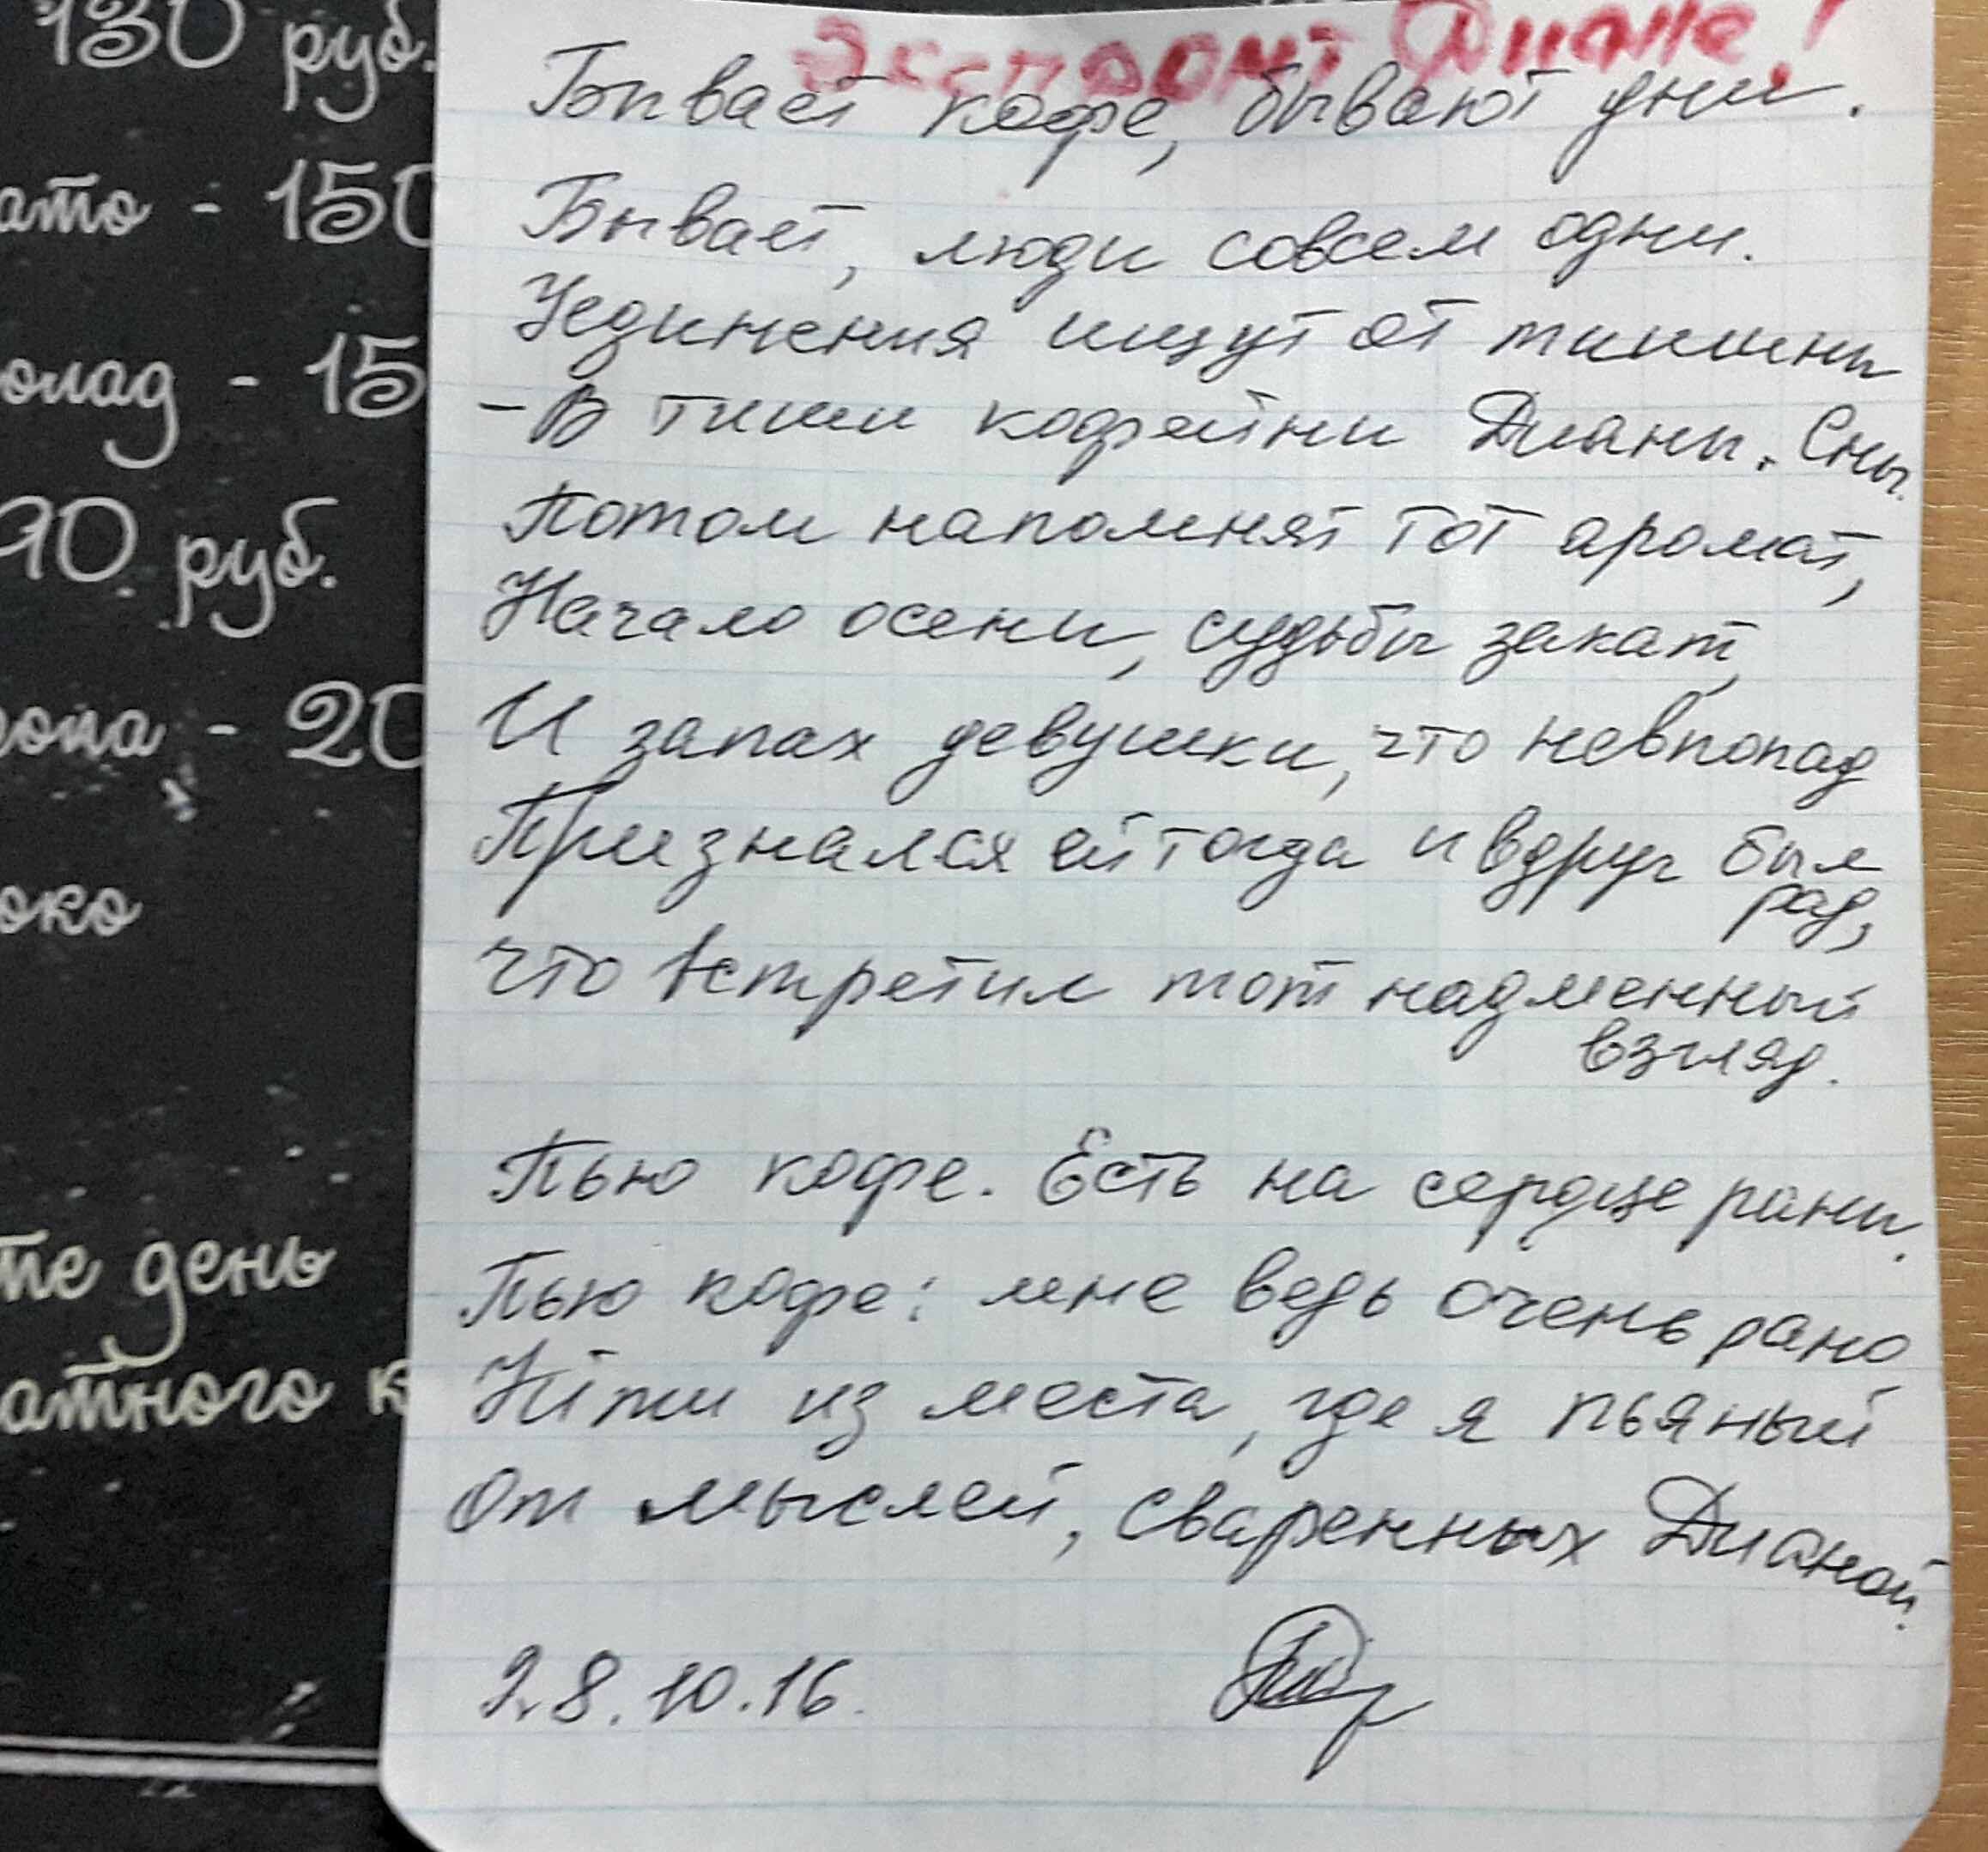 130 руб.
ато - 150
олад - 15
90 руб.
ропа - 20
око
те день
атного к
Экспромт Диане!
Бывает кофе, бывают дни.
Бывает, люди совсем одни.
Уединения ищут от тишины
- В тиши кофейни Дианы. Сны
Потом напомнят тот аромат,
Начало осени, судьбы закат,
И запах девушки, что невпопад
Признался ей тогда и вдруг был
рад,
что встретил тот надменный
взгляд.
Пью кофе. Есть на сердце раны.
Пью кофе: мне ведь очень рано
Уйти из места, где я пьяный
От мыслей, сваренных Дианой.
28.10.16.